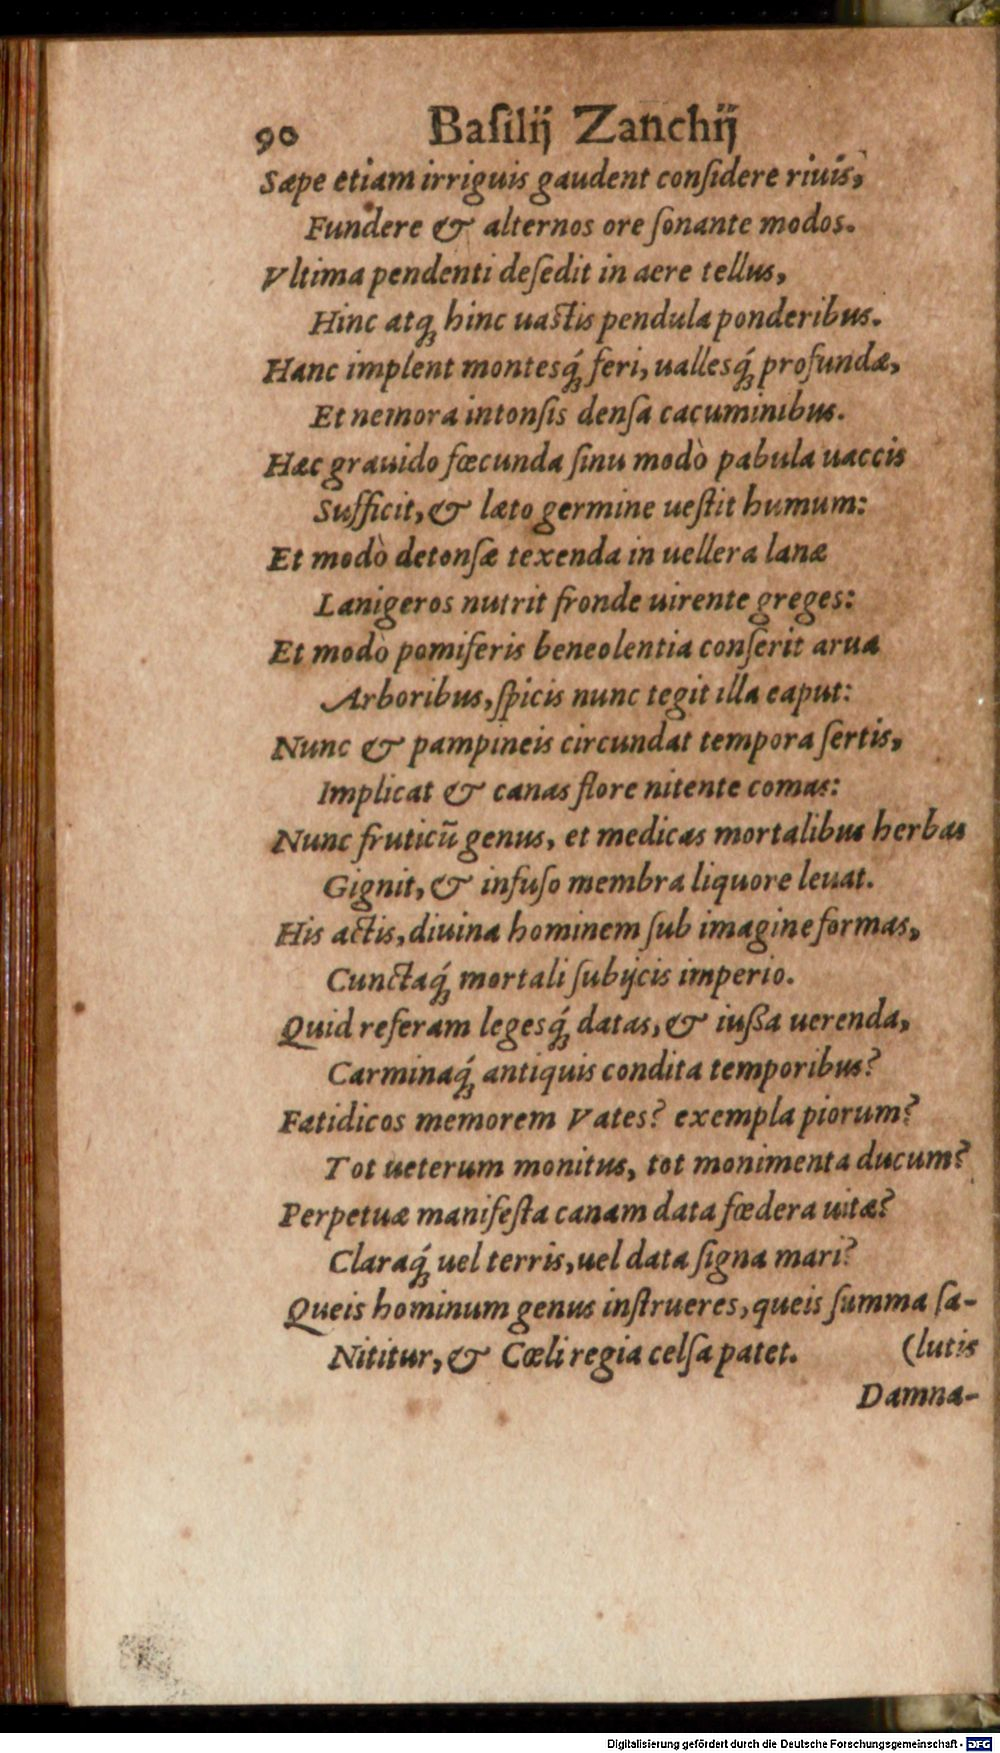 90 Baſilij Zanchij
Sæpe etiam irriguis gaudent conſidere riuis,
Fundere & alternos ore ſonante modos.
Vltima pendenti deſedit in aere tellus,
Hinc atq; hinc uastis pendula ponderibus.
Hanc implent montesq́; feri, uallesq́; profundæ,
Et nemora intonſis denſa cacuminibus.
Hæc grauido fœcunda ſinu modò pabula uaccis
Sufficit, & læto germine ueſtit humum:
Et modò detonſæ texenda in uellera lanæ
Lanigeros nutrit fronde uirente greges:
Et modò pomiferis beneolentia conſerit arua
Arboribus, ſpicis nunc tegit illa caput:
Nunc & pampineis circundat tempora ſertis,
Implicat & canas flore nitente comas:
Nunc fruticū genus, et medicas mortalibus herbas
Gignit, & infuſo membra liquore leuat.
His actis, diuina hominem ſub imagine formas,
Cunctaq́; mortali ſubijcis imperio.
Quid referam legesq́; datas, & iußa uerenda,
Carminaq́; antiquis condita temporibus?
Fatidicos memorem Vates? exempla piorum?
Tot ueterum monitus, tot monimenta ducum?
Perpetuæ manifeſta canam data fœdera uitæ?
Claraq́; uel terris, uel data ſigna mari?
Queis hominum genus inſtrueres, queis ſumma ſa-
Nititur, & Cœli regia celſa patet. (lutis
Damna-
Digitalisierung gefördert durch die Deutsche Forschungsgemeinschaft - DFG